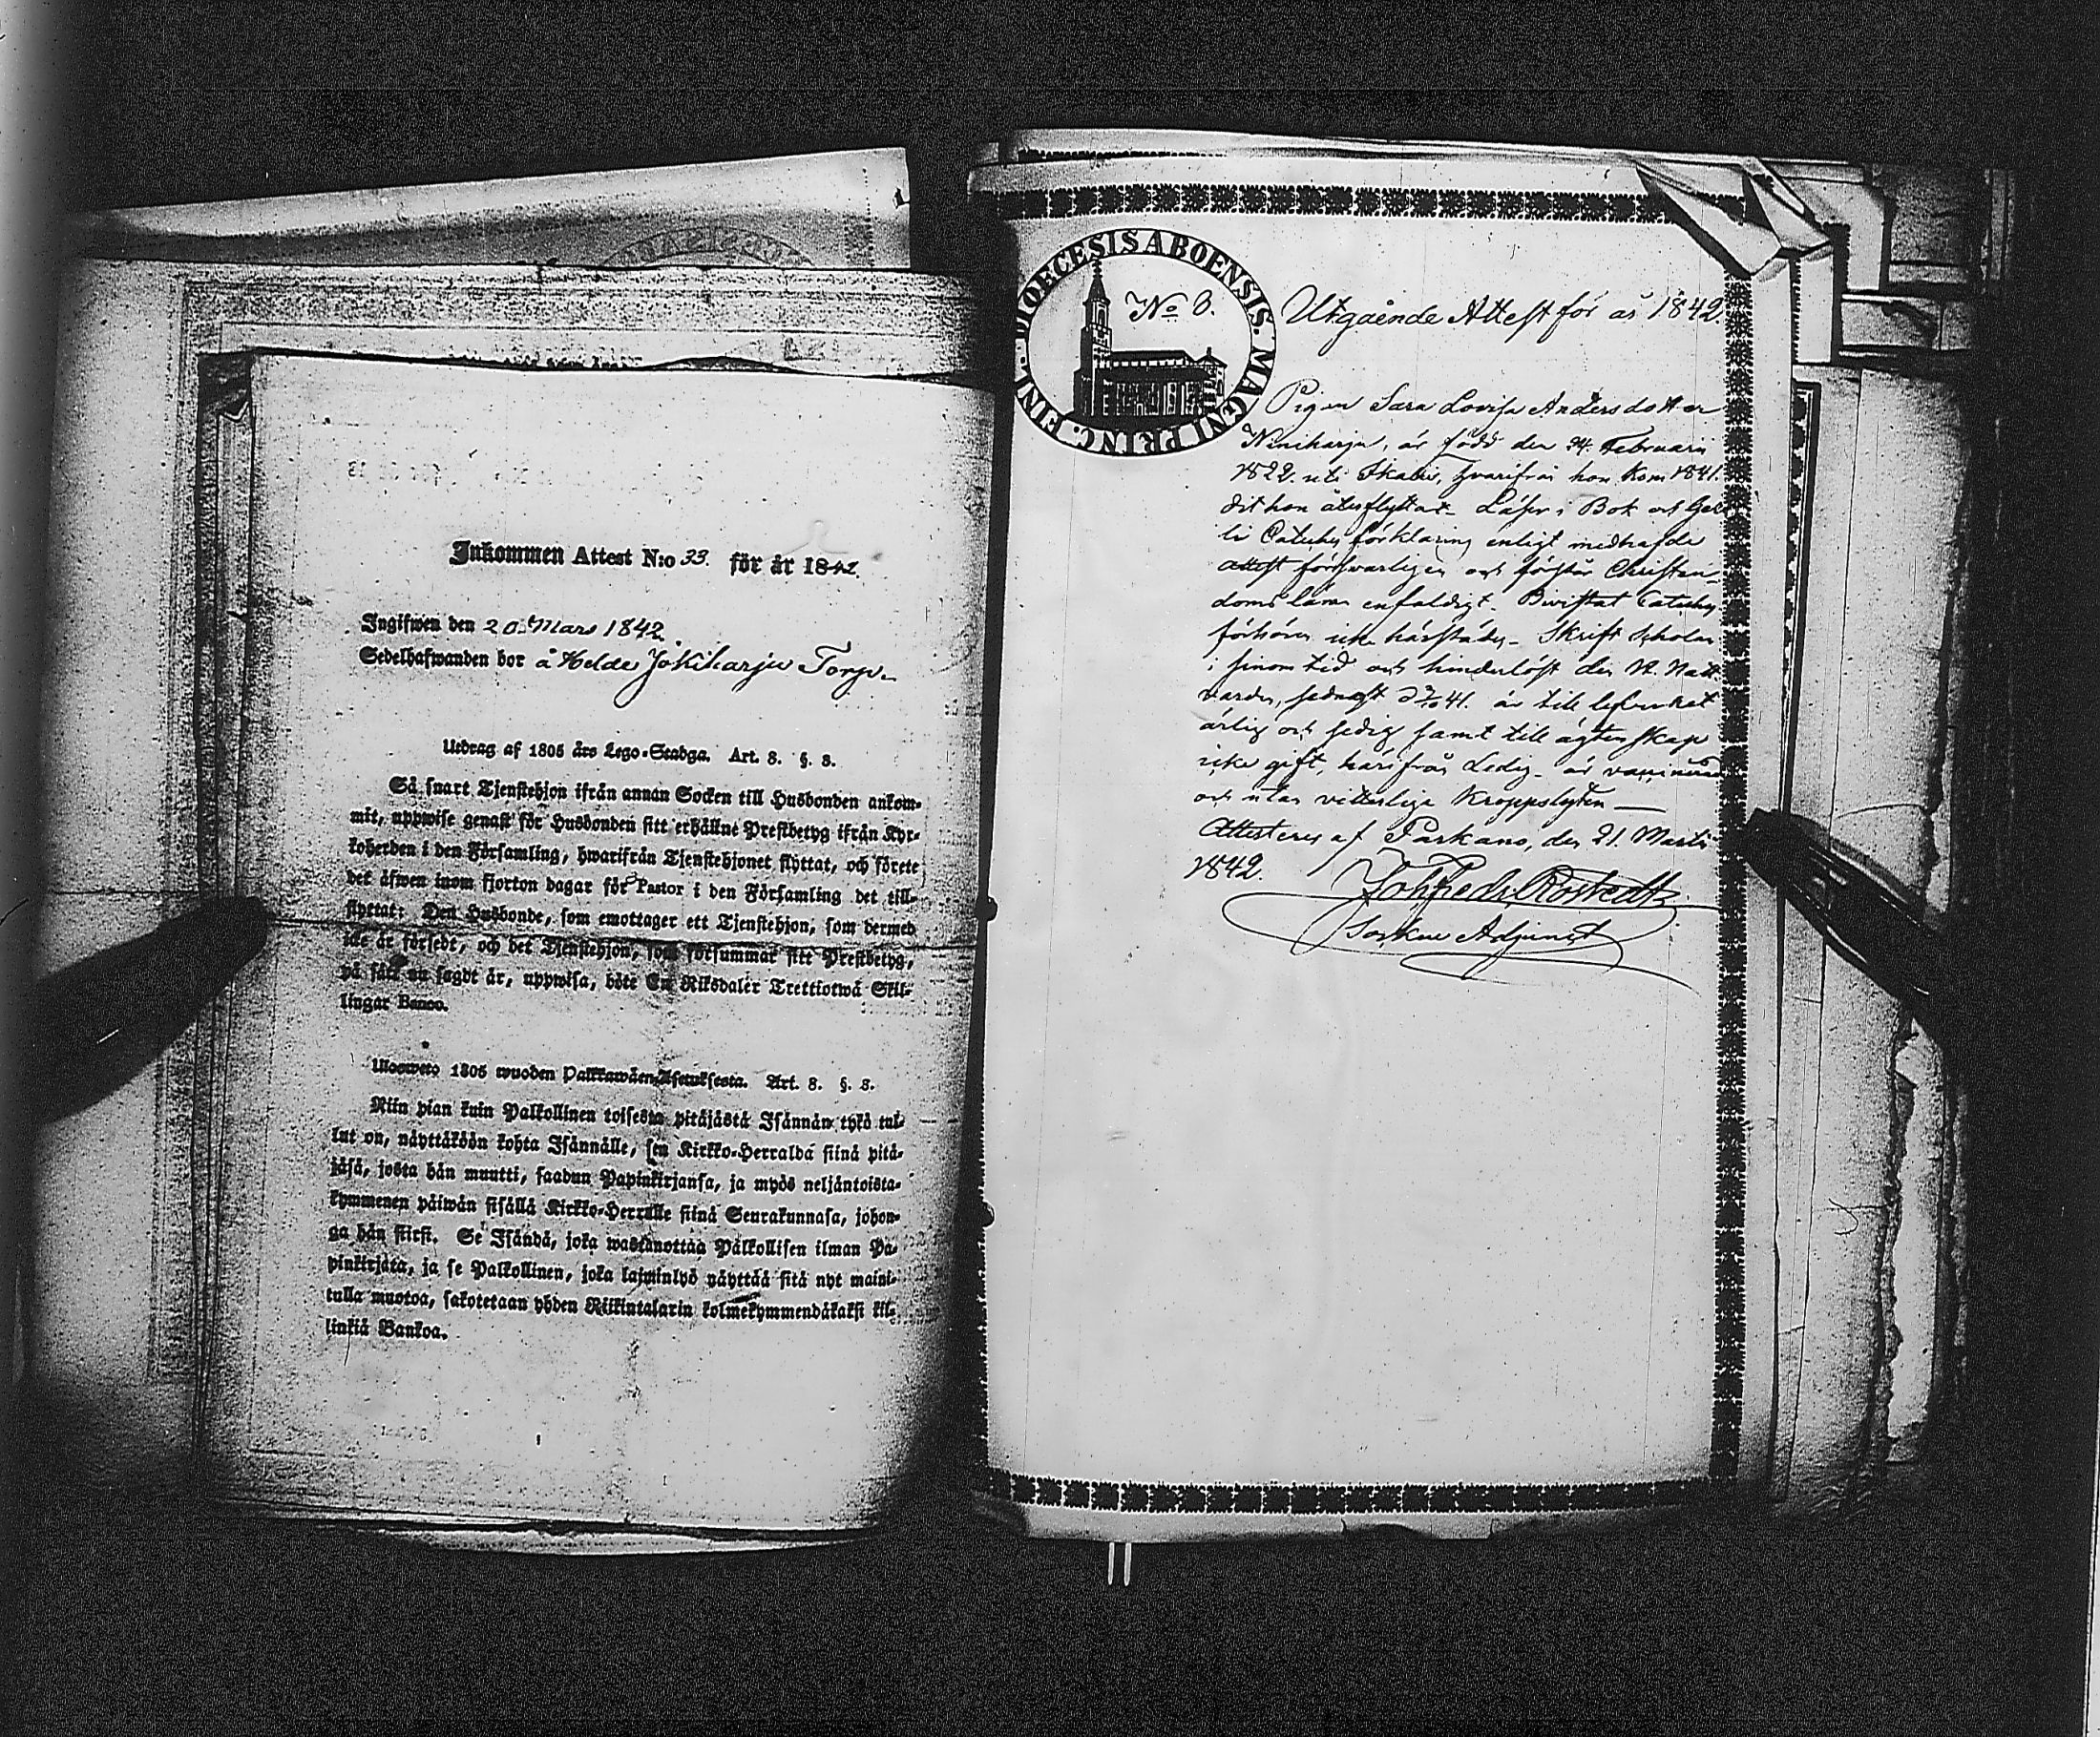 Inkommen Attest N:o 33. för år 1842.
Ingifwen den 20. Mars 1842.
Sedelhafwanden bor å Helde Jokiharju Torp.
Utdrag af 1805 års Lego-Stadga. Art. 8. §. 3.
Så snart Tjenstehjon ifrån annan Socken till Husbonden ankom-
mit, uppwise genast för Husbonden sitt erhållne Prestbetyg ifrån Kyr-
koherden i den Församling, hwarifrån Tjenstehjonet flyttat, och förete
det äfwen inom fjorton dagar för Pastor i den Församling det till-
flyttat: Den Husbonde, som emottager ett Tjenstehjon, som dermed
icke är försedt, och det Tjenstehjon, som försummar sitt Prestbetyg,
på sätt nu sagdt är, uppwisa, böte En Riksdaler Trettiotwå Skil-
lingar Banco.
Ulosweto 1805 wuoden Palkkawäen-Asetuksesta. Art. 8. §. 3.
Niin pian kuin Palkollinen toisesta pitäjästä Isännän tykö tul-
lut on, näyttäköön kohta Isännälle, sen Kirkko-Herralda siinä pitä-
jäsä, josta hän muutti, saadun Papinkirjansa, ja myös neljäntoista-
kymmenen päiwän sisällä Kirkko-Herralle siinä Seurakunnasa, johon-
ga hän siirsi. Se Isändä, joka wastanottaa Palkollisen ilman Pa-
pinkirjata, ja se Palkollinen, joka laiminlyö näyttää sitä nyt maini-
tulla muotoa, sakotetaan yhden Riikintalarin kolmekymmendäkaksi kil-
linkiä Bankoa.
FINL. DIOECESIS ABOENSIS MAGNI PRINC.
No 8.
Utgående Attest för år 1842.
Pigan Sara Lovisa Andersdotter
Niniharju, är född den 24. Februarii
1822. uti Ikalis, hvarifrån hon kom 1841.
dit hon återflyttar. Läser i Bok och
li Cateches förklaring enligt medhafde
attest försvarligen och förstår Christen-
doms läran enfaldigt. Bivistat Cateches
förhören icke härstädes. Skrift Scholan
i sinom tid och hinderlöst den H. Natt
varden, sednast 41. är till lefvernet
ärlig och sedig samt till ägtenskap
icke gift, härifrån Ledig. är vaccinerad
och utan vitterliga Kroppslyten
Attesteras af Parkano, den 21. Martii
1842.
Joh Fredr Rostedt
Sockne Adjunct